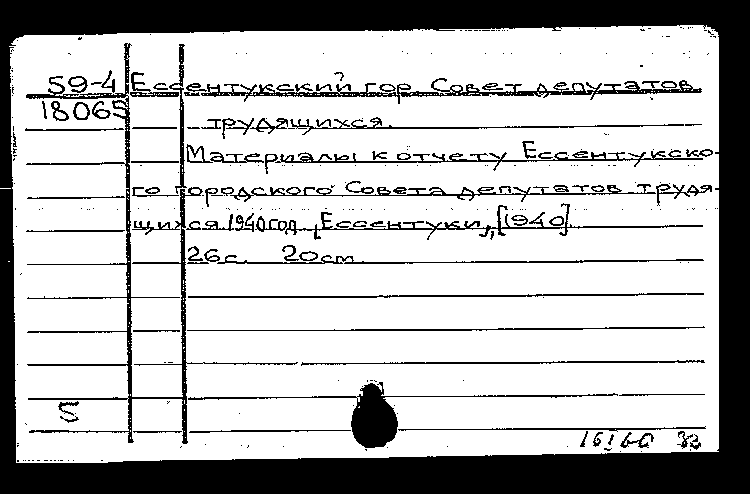 59-4 Ессентукский гор. Совет депутатов
18065 трудящихся.
Материалы к отчету Ессентукско-
го городского Совета депутатов трудя-
щихся. 1940 год. [Ессентуки], [1940]
26с. 20см
5
16 I 60 32